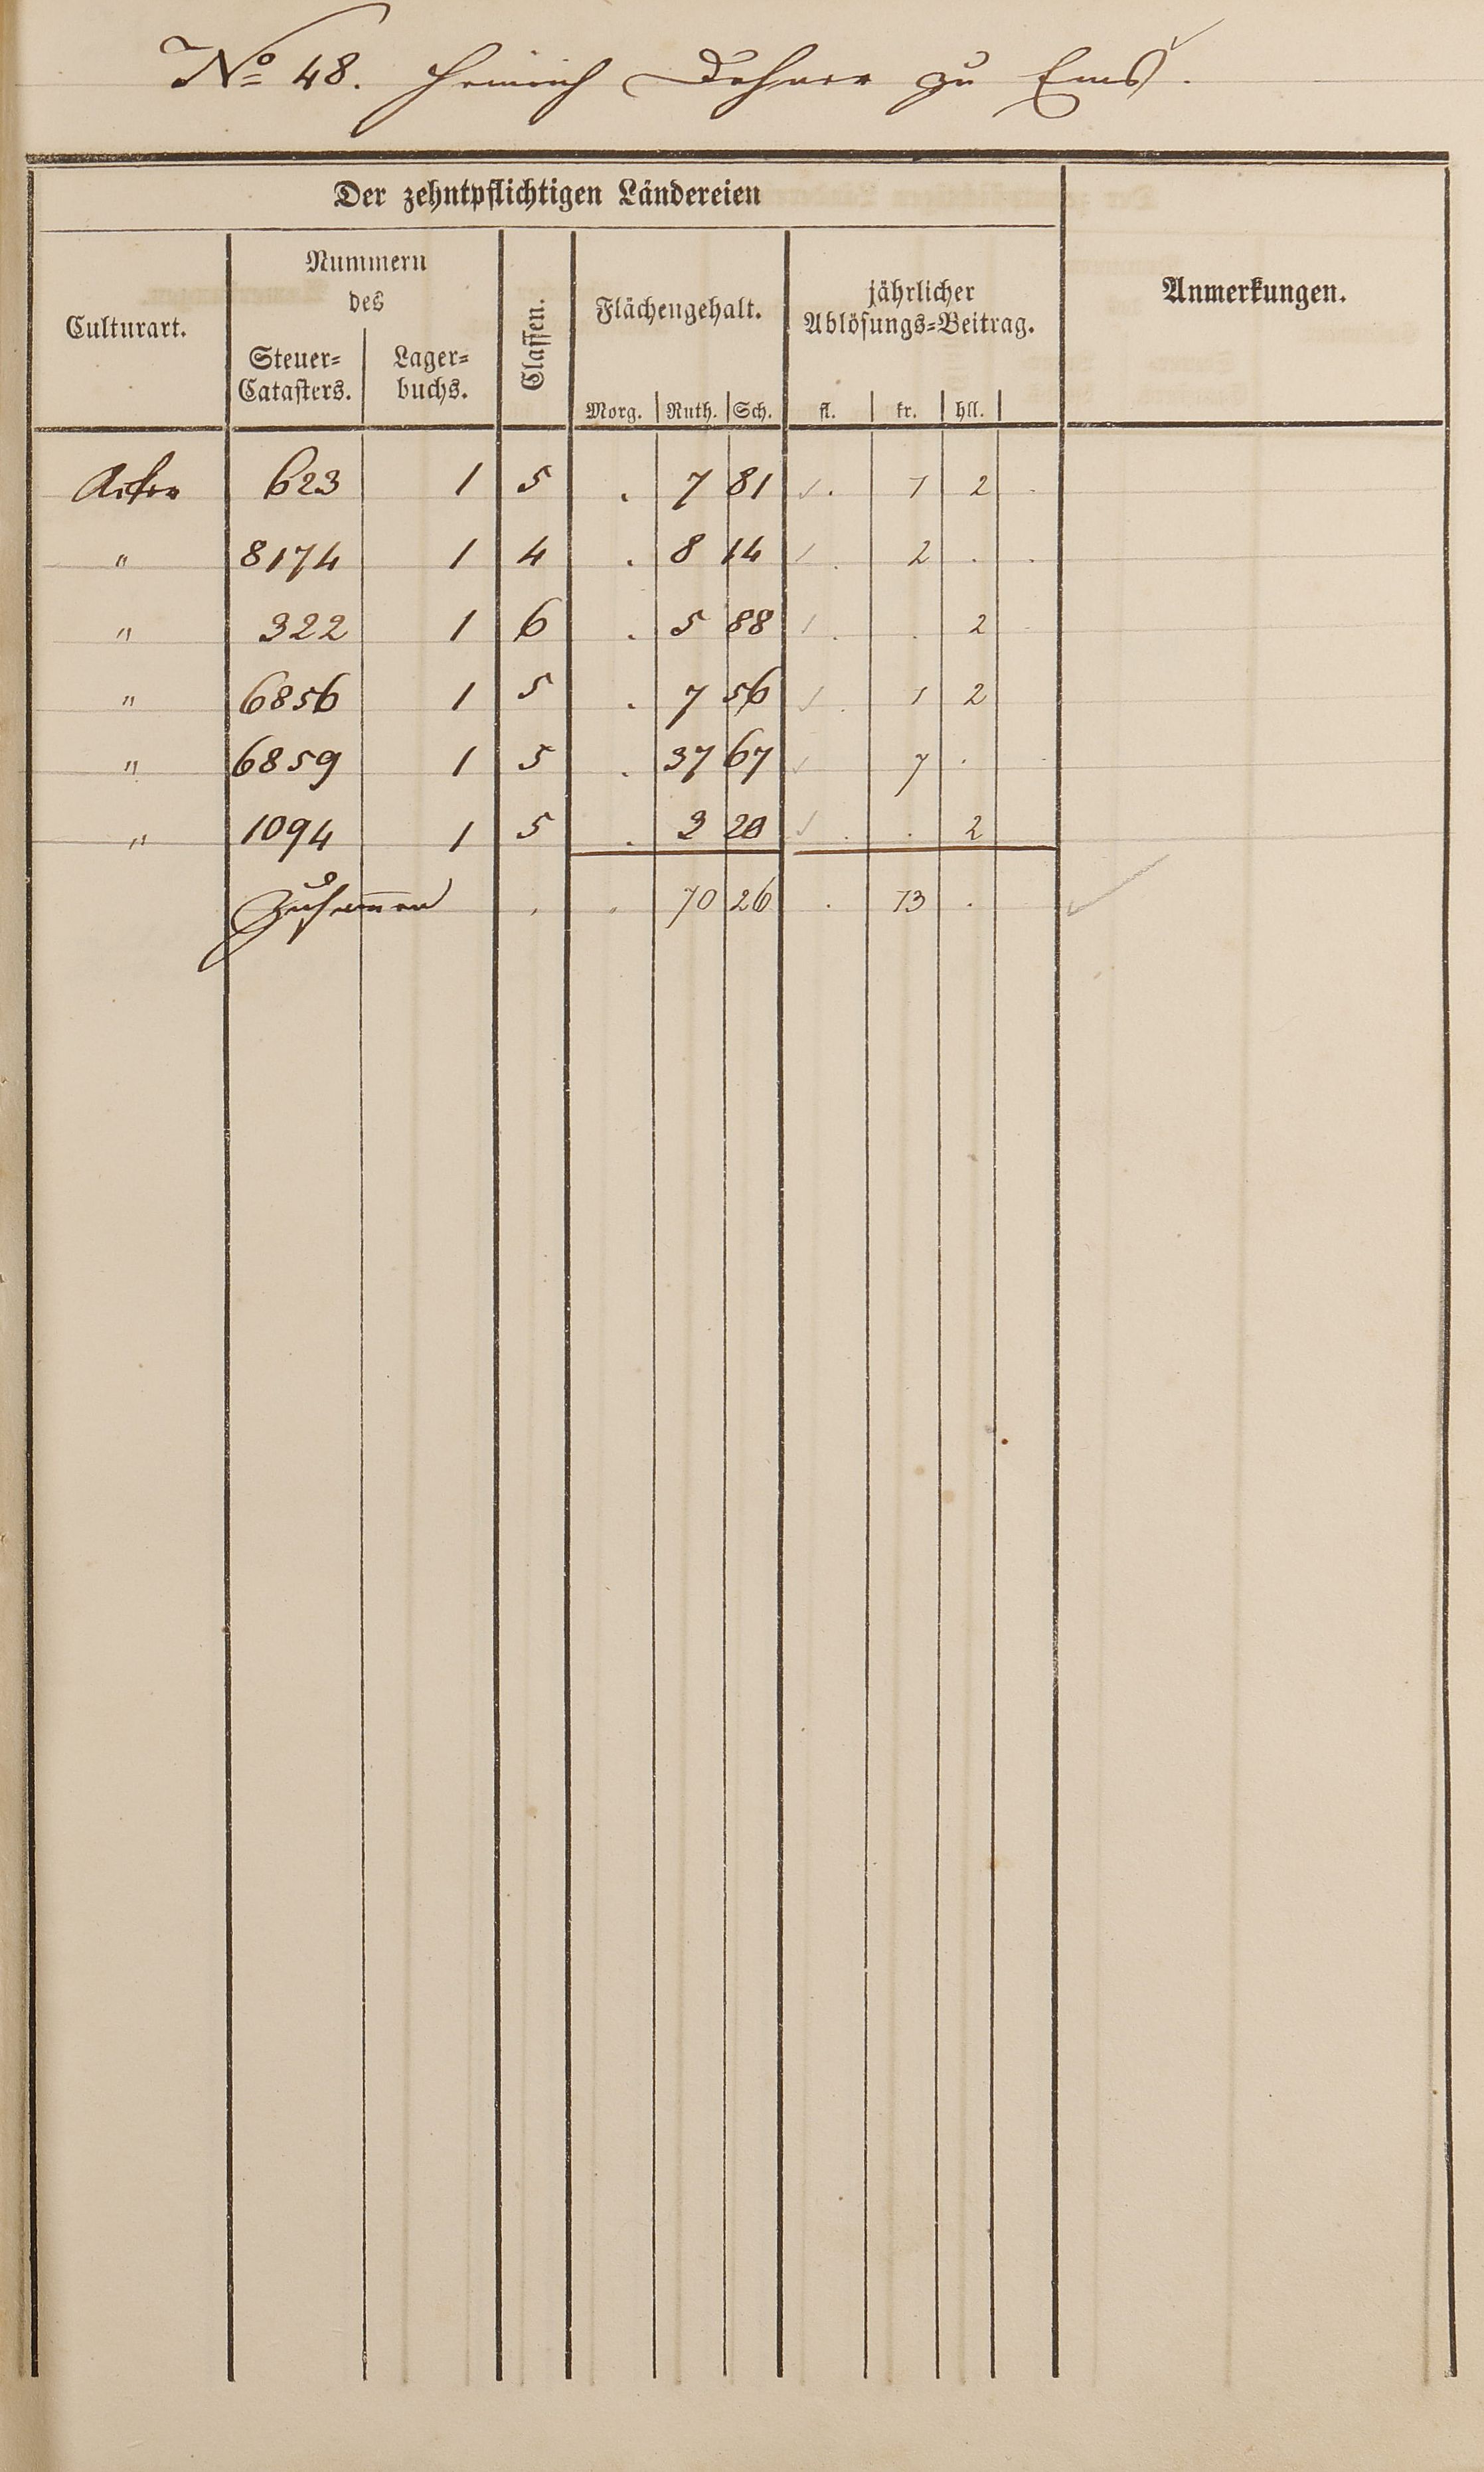 No 48. Heinrich Dehner zu Ems.
Der zehntpflichtigen Ländereien
Culturart.
Nummern
des
Steuer=
Catasters.
Lager=
buchs.
Classen.
Flächengehalt.
Morg. Ruth. Sch.
jährlicher
Ablösungs=Beitrag.
fl. kr. hll.
Anmerkungen.
Acker 623 1 5 . 7 81 . 1 2 .
" 8174 1 4 . 8 14 . 2 . .
" 322 1 6 . 5 88 . . 2
" 6856 1 5 . 7 56 . 1 2
" 6859 1 5 . 37 67 7 . .
" 1094 1 5 . 3 20 . . 2
Zusammen . . 70 26 . 13 .